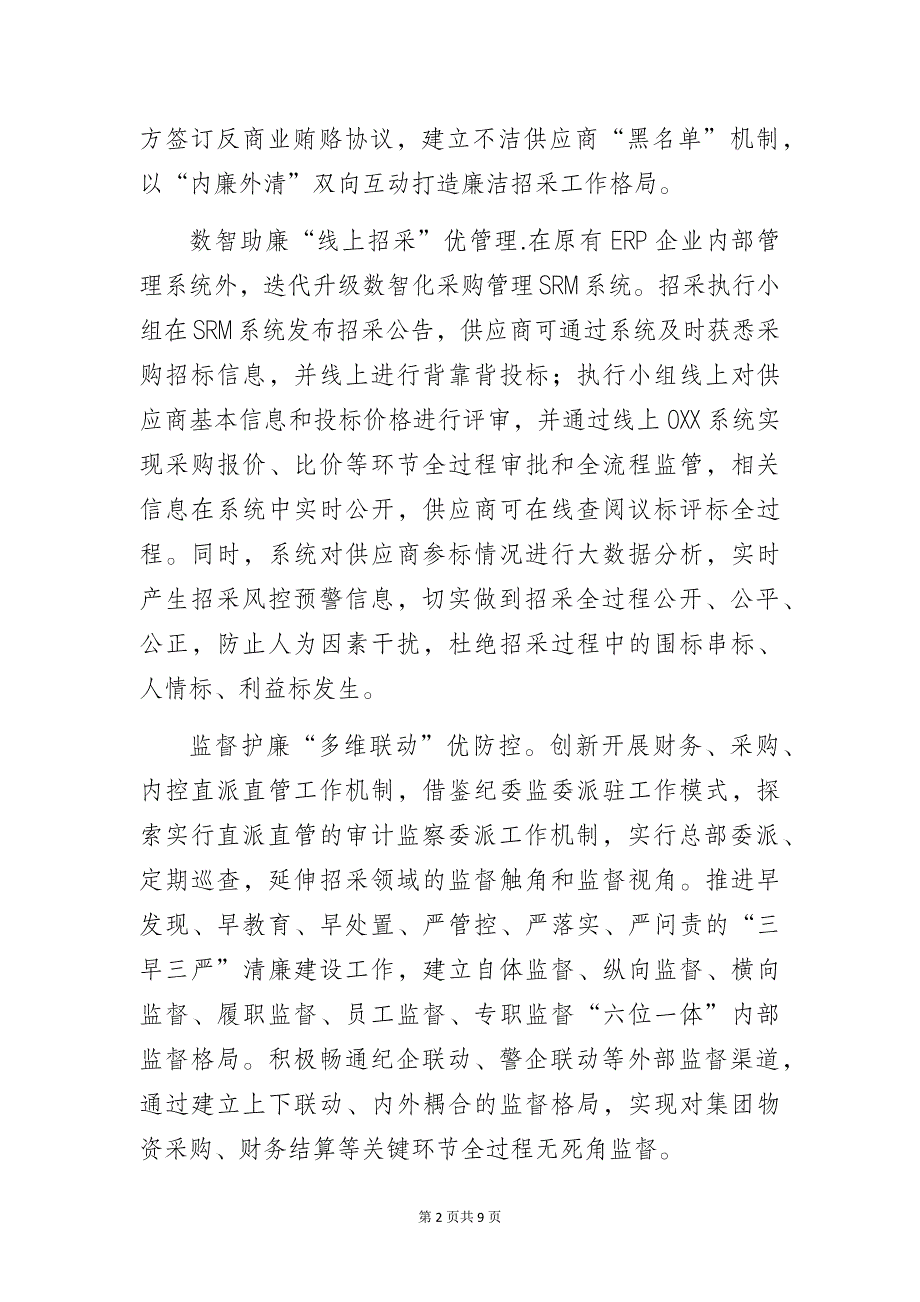 方签订反商业贿赂协议，建立不洁供应商“黑名单”机制，
以“内廉外清”双向互动打造廉洁招采工作格局。
数智助廉“线上招采”优管理.在原有 ERP 企业内部管
理系统外，迭代升级数智化采购管理 SRM 系统。招采执行小
组在 SRM 系统发布招采公告，供应商可通过系统及时获悉采
购招标信息，并线上进行背靠背投标；执行小组线上对供
应商基本信息和投标价格进行评审，并通过线上 OXX 系统实
现采购报价、比价等环节全过程审批和全流程监管，相关
信息在系统中实时公开，供应商可在线查阅议标评标全过
程。同时，系统对供应商参标情况进行大数据分析，实时
产生招采风控预警信息，切实做到招采全过程公开、公平、
公正，防止人为因素干扰，杜绝招采过程中的围标串标、
人情标、利益标发生。
监督护廉“多维联动”优防控。创新开展财务、采购、
内控直派直管工作机制，借鉴纪委监委派驻工作模式，探
索实行直派直管的审计监察委派工作机制，实行总部委派、
定期巡查，延伸招采领域的监督触角和监督视角。推进早
发现、早教育、早处置、严管控、严落实、严问责的“三
早三严”清廉建设工作，建立自体监督、纵向监督、横向
监督、履职监督、员工监督、专职监督“六位一体”内部
监督格局。积极畅通纪企联动、警企联动等外部监督渠道，
通过建立上下联动、内外耦合的监督格局，实现对集团物
资采购、财务结算等关键环节全过程无死角监督。
第 2 页共 9 页